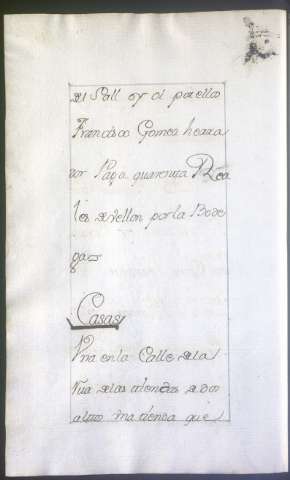 del Sall oy di por ellos
Francisco Gomez herra
dor Paga quarenta Rea
les de vellon por la Bode
gas
Casas
Vna en la Calle de la
Rua de las atenazas de dos
altos vna tienda que